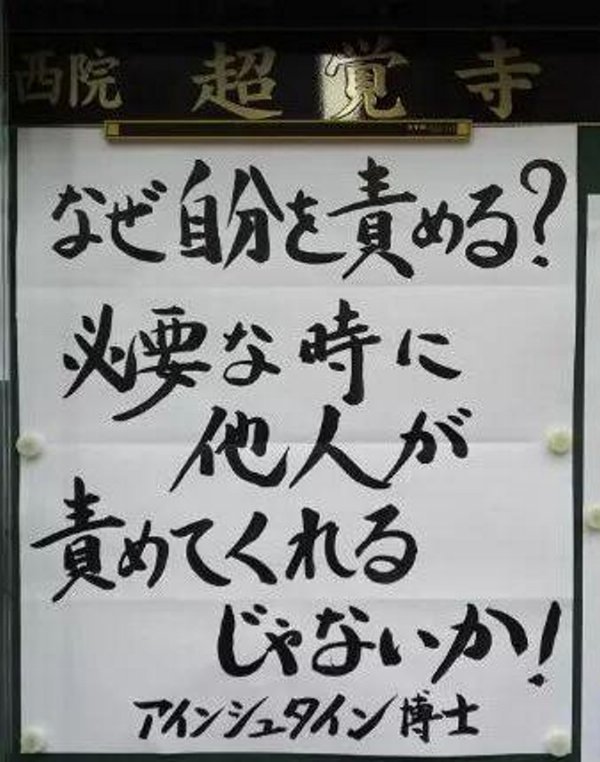 西院 超覚寺
なぜ自分を責める?
必要な時に
他人が
責めてくれる
じゃないか!
アインシュタイン博士